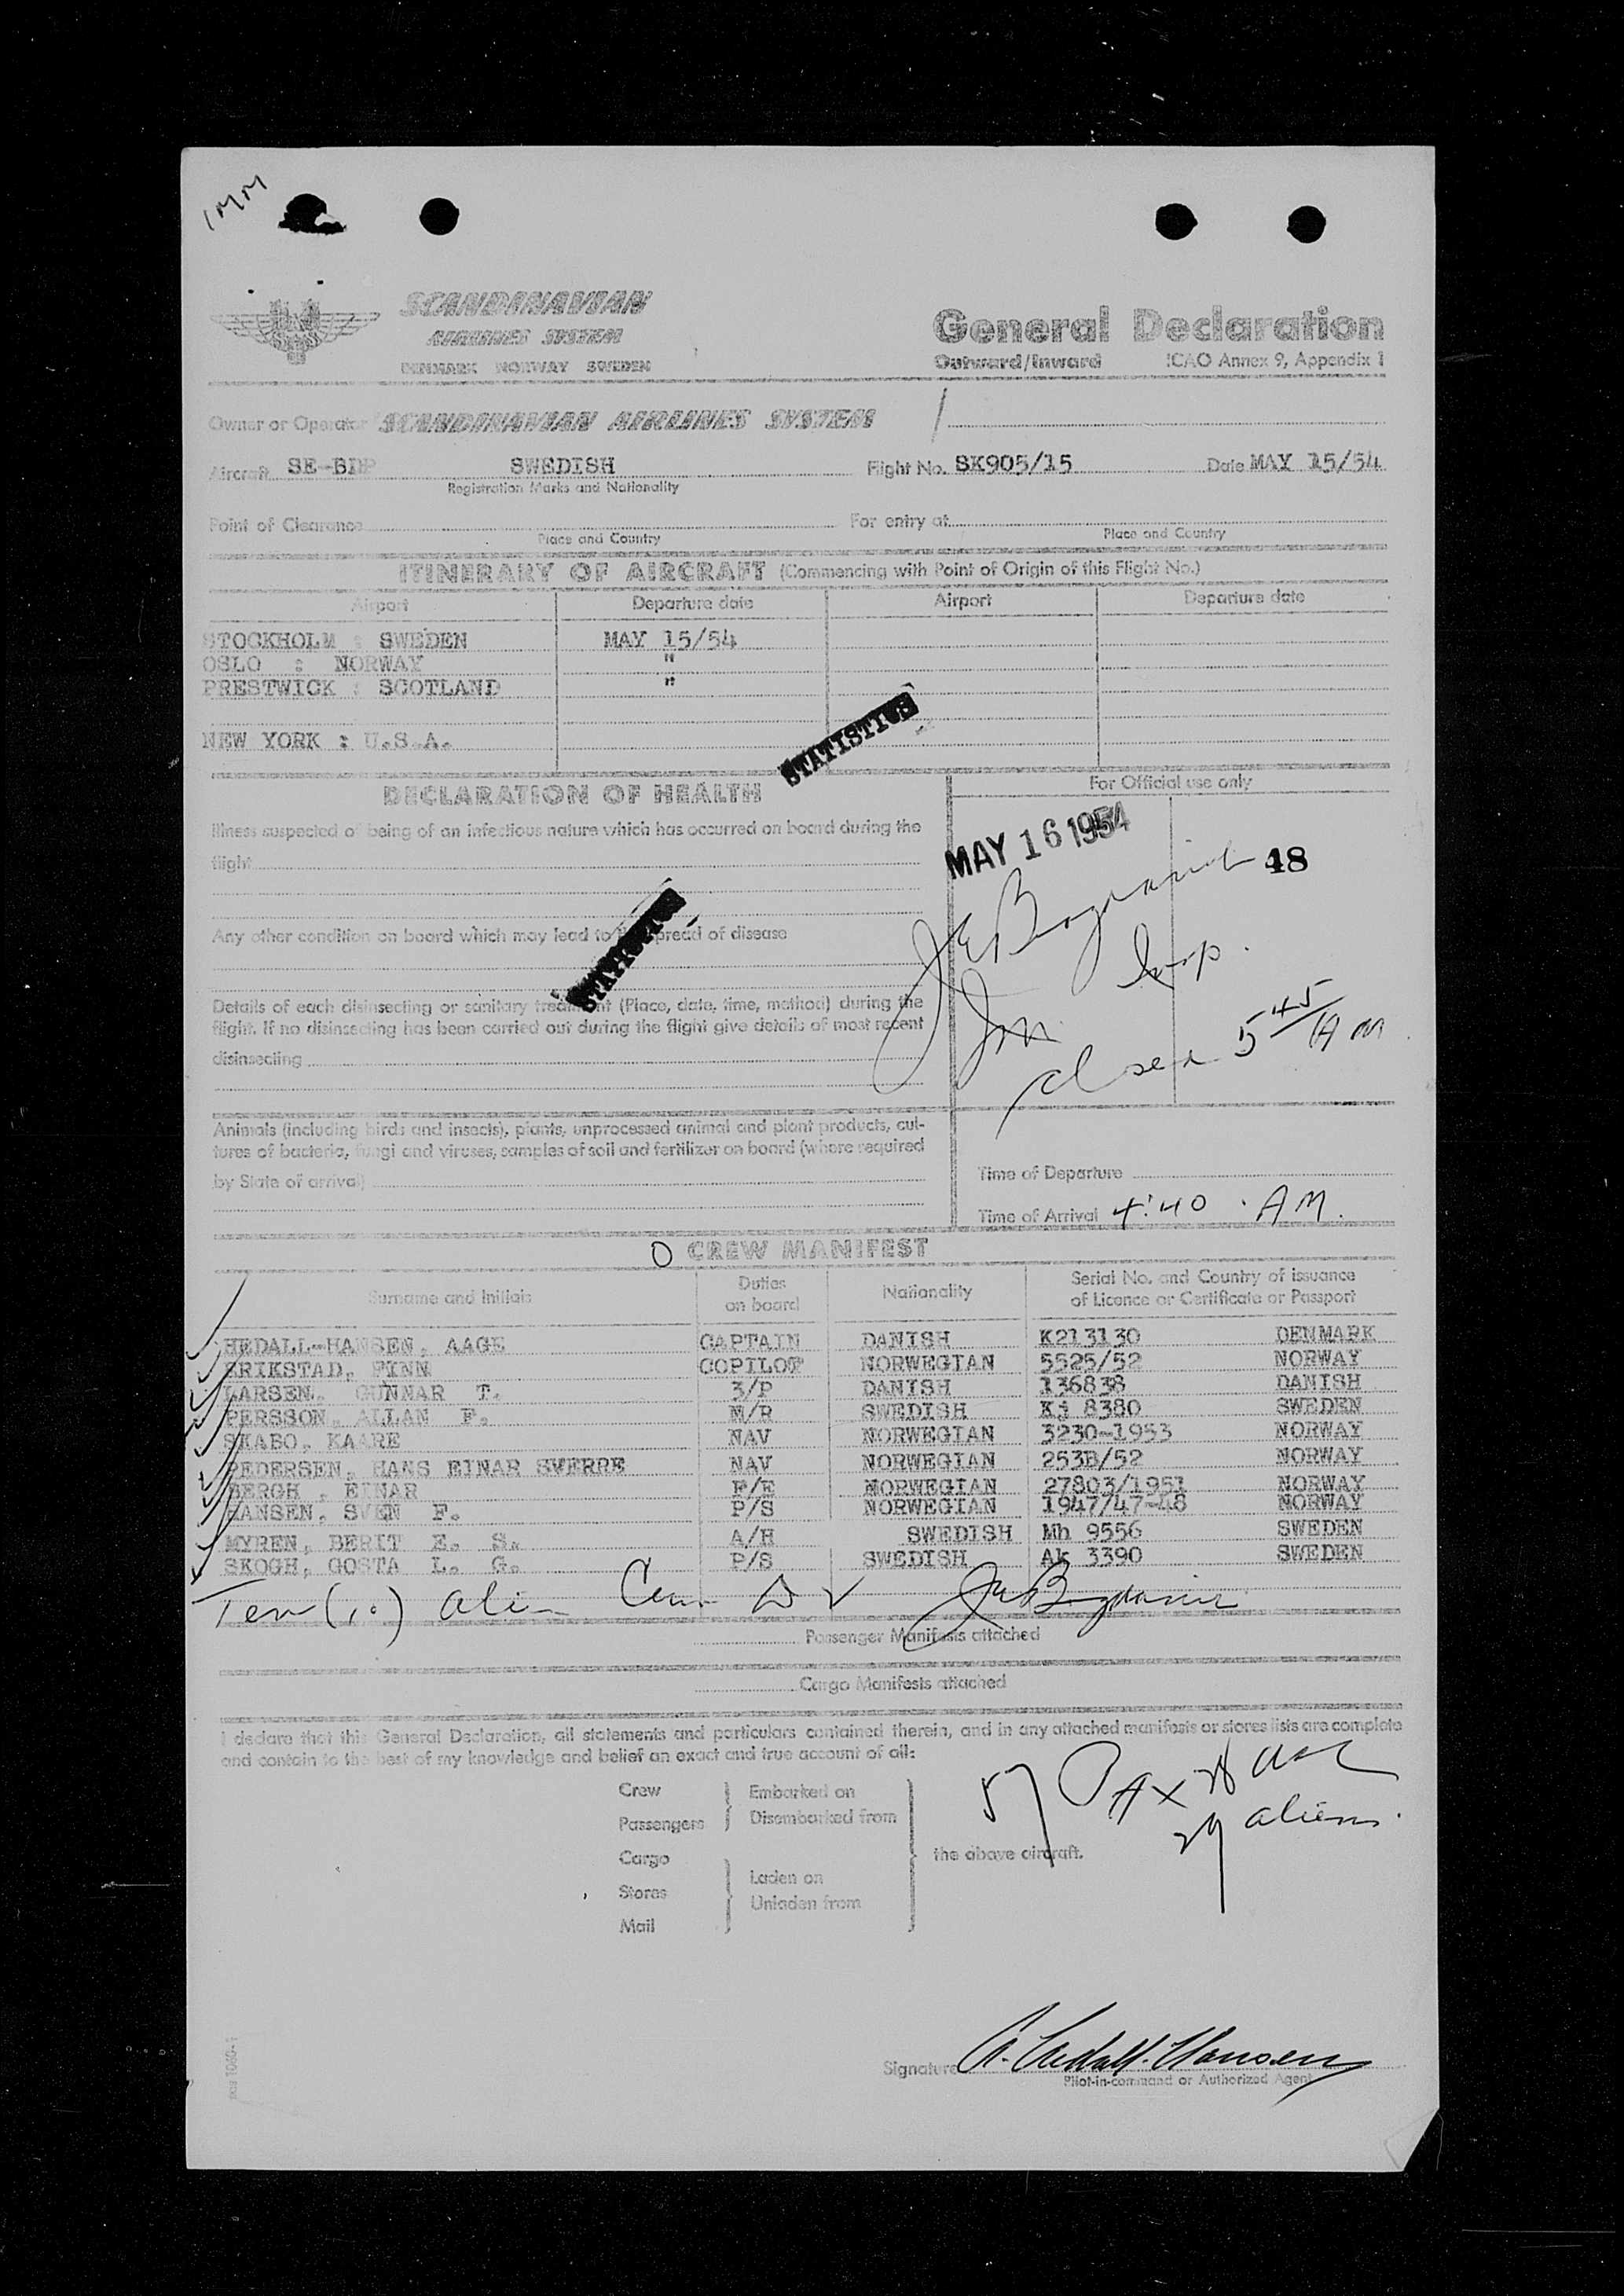 IMM
SCANDINAVIAN
AIRLINES SYSTEM
DENMARK NORWAY SWEDEN
General Declaration
Outward/Inward ICAO Annex 9, Appendix 1
Owner or Operator SCANDINAVIAN AIRLINES SYSTEM
Aircraft SE-BDP SWEDISH Flight No. SK905/15 Date MAY 15/54
Registration Marks and Nationality
Point of Clearance For entry at
Place and Country Place and Country
ITINERARY OF AIRCRAFT (Commencing with Point of Origin of this Flight No.)
Airport Departure date Airport Departure date
STOCKHOLM : SWEDEN MAY 15/54
OSLO : NORWAY "
PRESTWICK : SCOTLAND "
NEW YORK : U.S.A.
STATISTICS
DECLARATION OF HEALTH
For Official use only
Illness suspected of being of an infectious nature which has occurred on board during the
flight
MAY 16 1954
48
Insp.
Any other condition on board which may lead to the spread of disease
STATISTICS
Details of each disinsecting or sanitary treatment (Place, date, time, method) during the
flight. If no disinsecting has been carried out during the flight give details of most recent
disinsecting
5 45 AM
Animals (including birds and insects), plants, unprocessed animal and plant products, cul-
tures of bacteria, fungi and viruses, samples of soil and fertilizer on board (where required
by State of arrival)
Time of Departure
Time of Arrival 4:40 . AM.
O CREW MANIFEST
Surname and Initials Duties on board Nationality Serial No. and Country of issuance of Licence or Certificate or Passport
HEDALL-HANSEN, AAGE CAPTAIN DANISH K213130 DENMARK
ERIKSTAD, FINN COPILOT NORWEGIAN 5525/52 NORWAY
LARSEN, GUNNAR T. 3/P DANISH 136838 DANISH
PERSSON, ALLAN F. M/R SWEDISH Kj 8380 SWEDEN
SKABO, KAARE NAV NORWEGIAN 3230-1953 NORWAY
PEDERSEN, HANS EINAR SVERRE NAV NORWEGIAN 253B/52 NORWAY
BERGH , EINAR F/E NORWEGIAN 27803/1951 NORWAY
HANSEN, SVEN F. P/S NORWEGIAN 1947/47-48 NORWAY
MYREN, BERIT E. S. A/H SWEDISH Mh 9556 SWEDEN
SKOGH, GOSTA L. G. P/S SWEDISH Ak 3390 SWEDEN
Ten (10)
Passenger Manifests attached
Cargo Manifests attached
I declare that this General Declaration, all statements and particulars contained therein, and in any attached manifests or stores lists are complete
and contain to the best of my knowledge and belief an exact and true account of all:
Crew Embarked on
Passengers Disembarked from
Cargo
Laden on
Stores
Unladen from
Mail
the above aircraft.
57 PAX 28 USC
29 aliens.
Signature A. Hedall-Hansen
Pilot-in-command or Authorized Agent